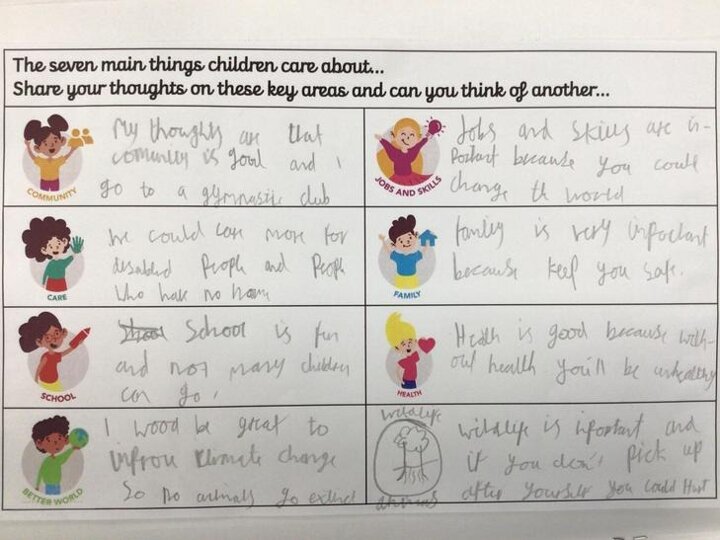 The seven main things children care about...
Share your thoughts on these key areas and can you think of another...
My thoughts are that
community is good and I
go to a gymnastic club
COMMUNITY
Jobs and skills are im-
portant because you could
change th world
JOBS AND SKILLS
We could care more for
disabled people and people
who have no home
CARE
family is very important
because keep you safe.
FAMILY
School is fun
and not many children
can go.
SCHOOL
Health is good because with-
out health you'll be unhealthy
HEALTH
I wood be great to
climate change
so no animals go extinct
BETTER WORLD
wildlife
animals
wildlife is iportant and
if you don't pick up
after yourself you could Hurt